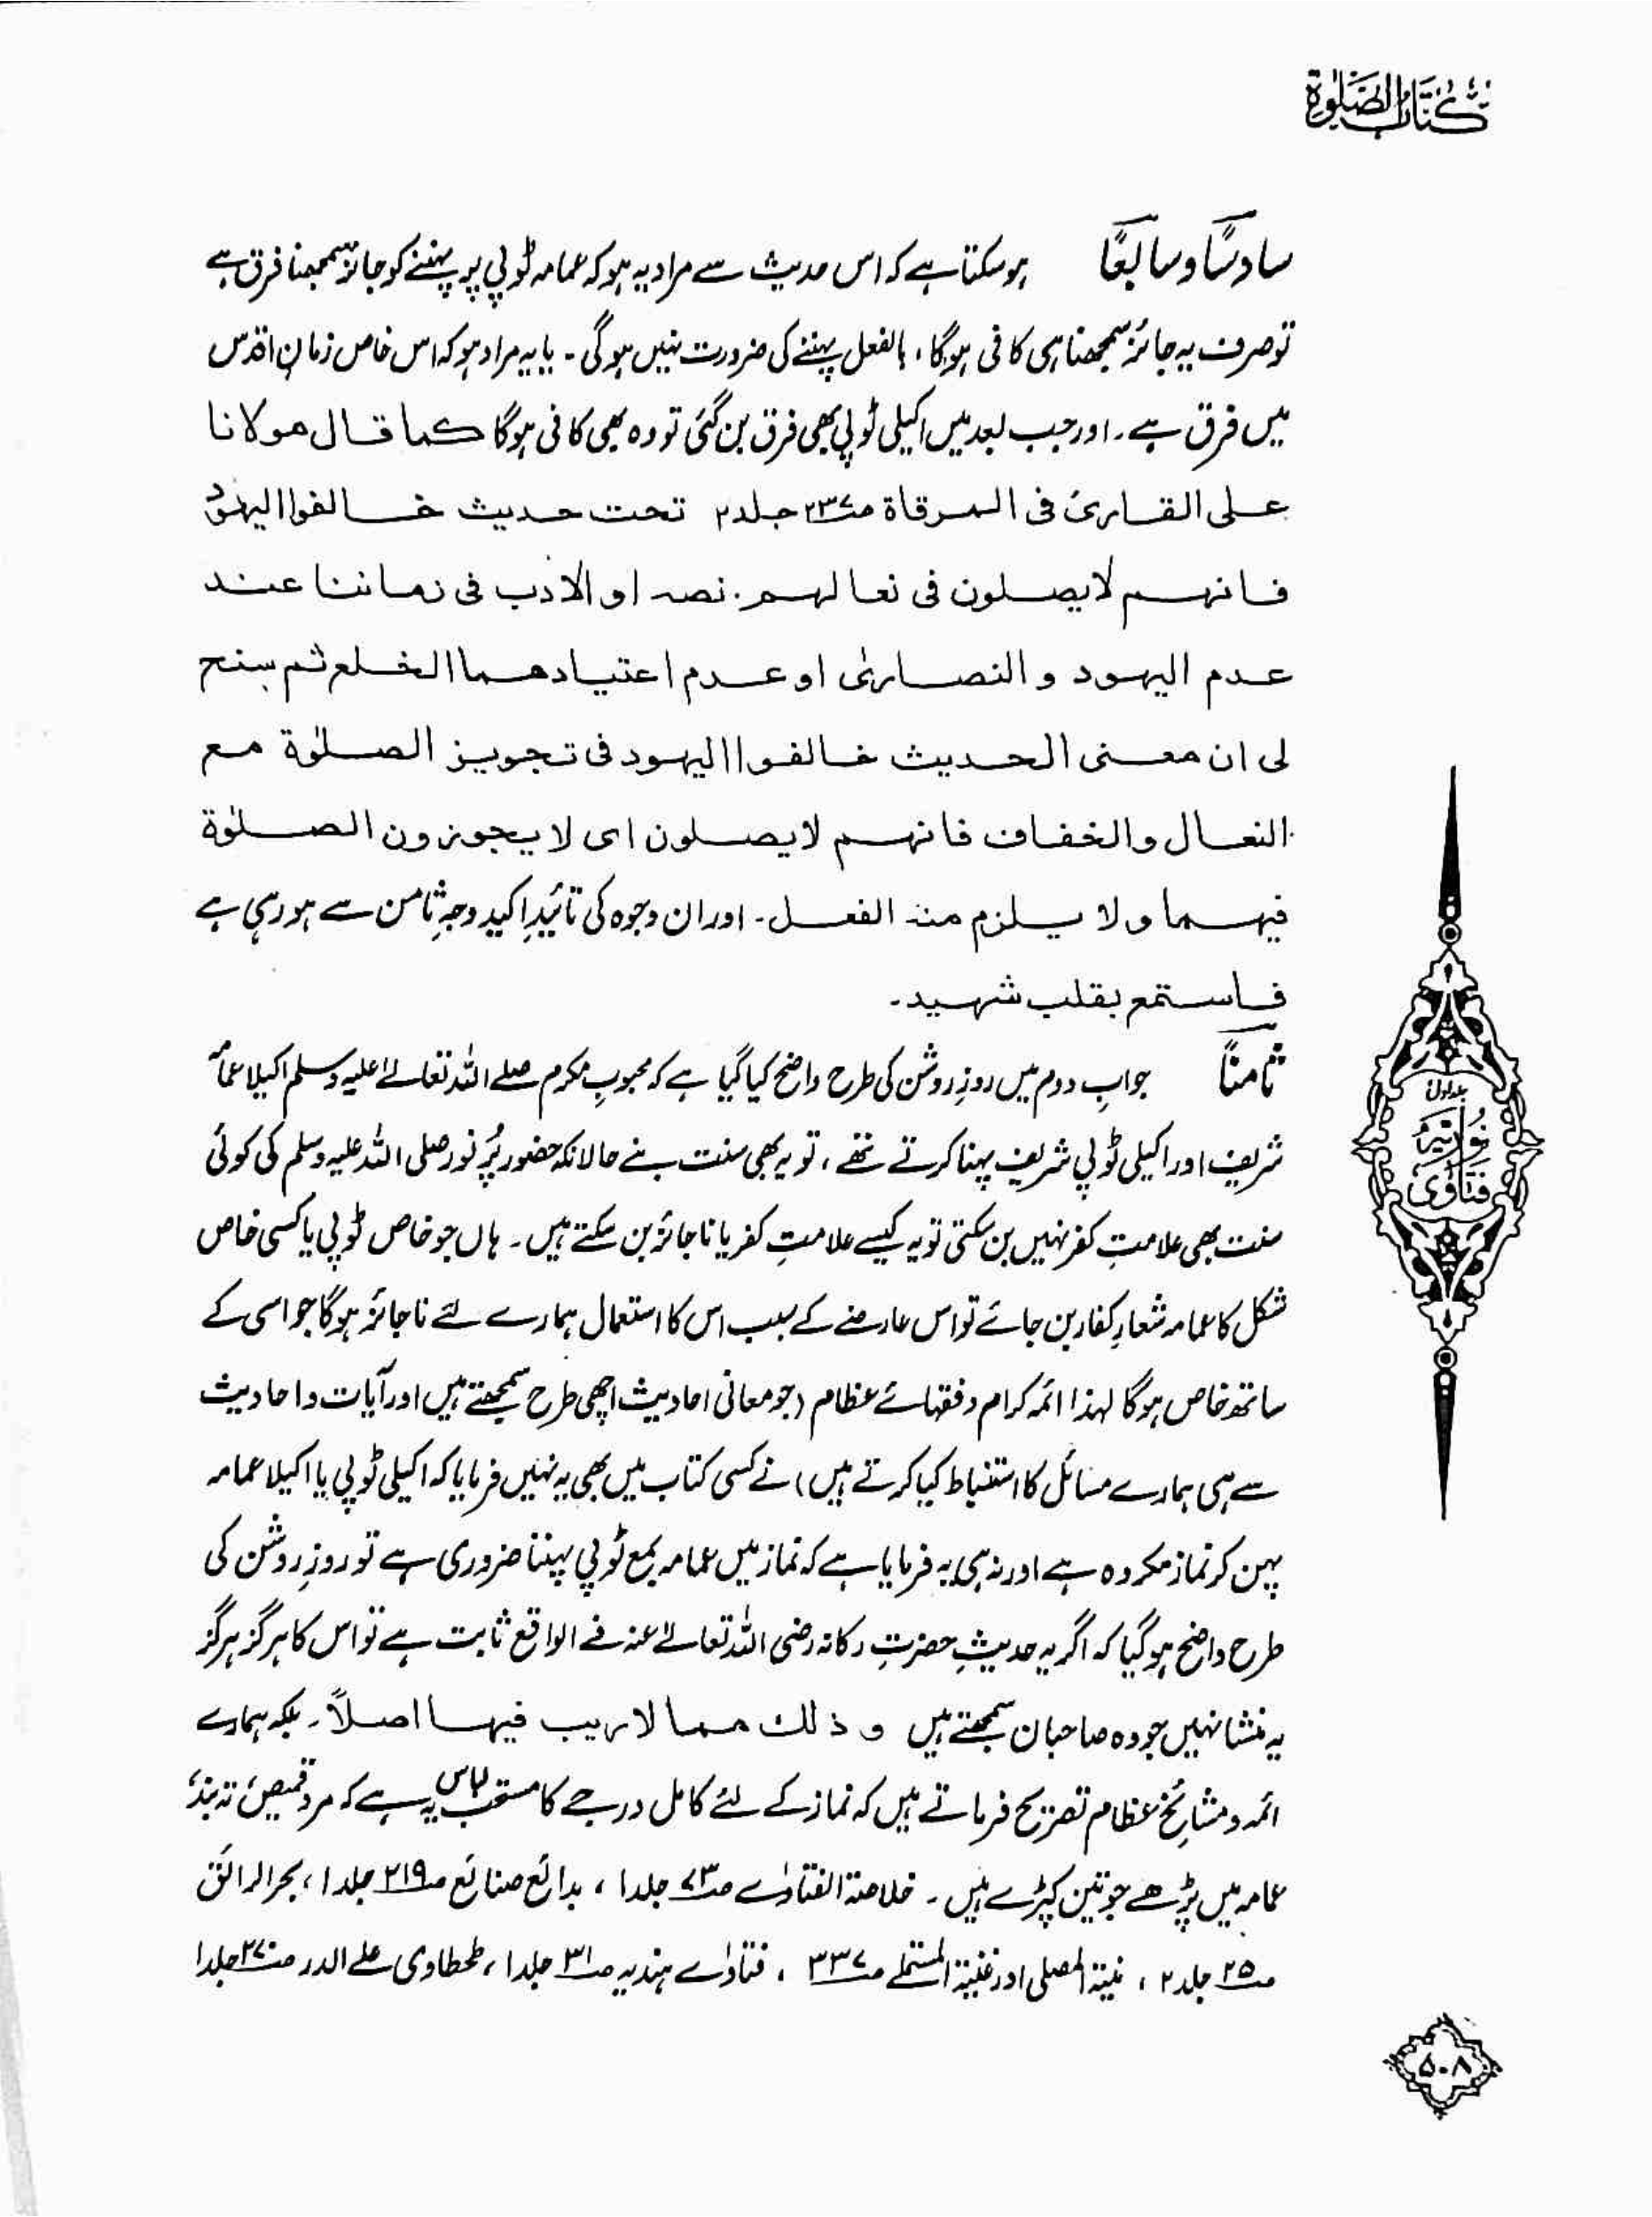 كتاب الصلوة
سادسًا وسابعًا ہوسکتا ہے کہ اس حدیث سے مراد یہ ہو کہ عمامہ ٹوپی پر پہننے کو جائز سمجھنا فرق ہے
تو صرف یہ جائز سمجھنا ہی کافی ہوگا، بالفعل پہننے کی ضرورت نہیں ہوگی۔ یا یہ مراد ہو کہ اس خاص زمانِ اقدس
میں فرق ہے۔ اور جب بعد میں اکیلی ٹوپی بھی فرق بن گئی تو وہ بھی کافی ہوگا کما قال مولانا
علی القاری فی المرقاة ص۲۳۷ جلد۲ تحت حدیث خالفوا الیهود
فانهم لا یصلون فی نعالهم. نصہ او الادب فی زماننا عند
عدم الیهود والنصاریٰ او عدم اعتیادهما الخلع ثم سنح
لی ان معنی الحدیث خالفوا الیهود فی تجویز الصلوٰة مع
النعال والخفاف فانهم لا یصلون ای لا یجوزون الصلوٰة
فیهما ولا یلزم منه الفعل۔ اور ان وجوہ کی تائیدِ اکید وجہِ ثامن سے ہو رہی ہے
فاستمع بقلب شهید۔
ثامنًا جوابِ دوم میں روزِ روشن کی طرح واضح کیا گیا ہے کہ محبوبِ مکرم صلے اللہ تعالےٰ علیہ وسلم اکیلا عمامہ
شریف اور اکیلی ٹوپی شریف پہنا کرتے تھے، تو یہ بھی سنت بنے حالانکہ حضور پُر نور صلی اللہ علیہ وسلم کی کوئی
سنت بھی علامتِ کفر نہیں بن سکتی تو یہ کیسے علامتِ کفر یا ناجائز بن سکتے ہیں۔ ہاں جو خاص ٹوپی یا کسی خاص
شکل کا عمامہ شعارِ کفار بن جائے تو اس عارضے کے سبب اس کا استعمال ہمارے لئے ناجائز ہوگا جو اسی کے
ساتھ خاص ہوگا لہذا ائمہ کرام و فقہائے عظام (جو معانی احادیث اچھی طرح سمجھتے ہیں اور آیات و احادیث
سے ہی ہمارے مسائل کا استنباط کیا کرتے ہیں) نے کسی کتاب میں بھی یہ نہیں فرمایا کہ اکیلی ٹوپی یا اکیلا عمامہ
پہن کر نماز مکروہ ہے اور نہ ہی یہ فرمایا ہے کہ نماز میں عمامہ بمع ٹوپی پہننا ضروری ہے تو روزِ روشن کی
طرح واضح ہوگیا کہ اگر یہ حدیثِ حضرتِ رکانہ رضی اللہ تعالےٰ عنہ فے الواقع ثابت ہے تو اس کا ہرگز ہرگز
یہ منشا نہیں جو وہ صاحبان سمجھتے ہیں و ذلك مما لا ریب فیها اصلاً۔ بلکہ ہمارے
ائمہ و مشائخِ عظام تصریح فرماتے ہیں کہ نماز کے لئے کامل درجے کا مستحب لباس یہ ہے کہ مرد قمیص، تہ بند،
عمامہ میں پڑھے جو تین کپڑے ہیں۔ خلاصۃ الفتاوےٰ ص۷۳ جلد۱، بدائع صنائع ص۲۱۹ جلد۱، بحر الرائق
ص۲۵ جلد۲، منیۃ المصلی اور غنیۃ المستملے ص۳۳۷، فتاوےٰ ہندیہ ص۳۱ جلد۱، طحطاوی علے الدر ص۲۷۰ جلد۱
جلد اول
نوریہ
فتاوٰی
۵۰۸